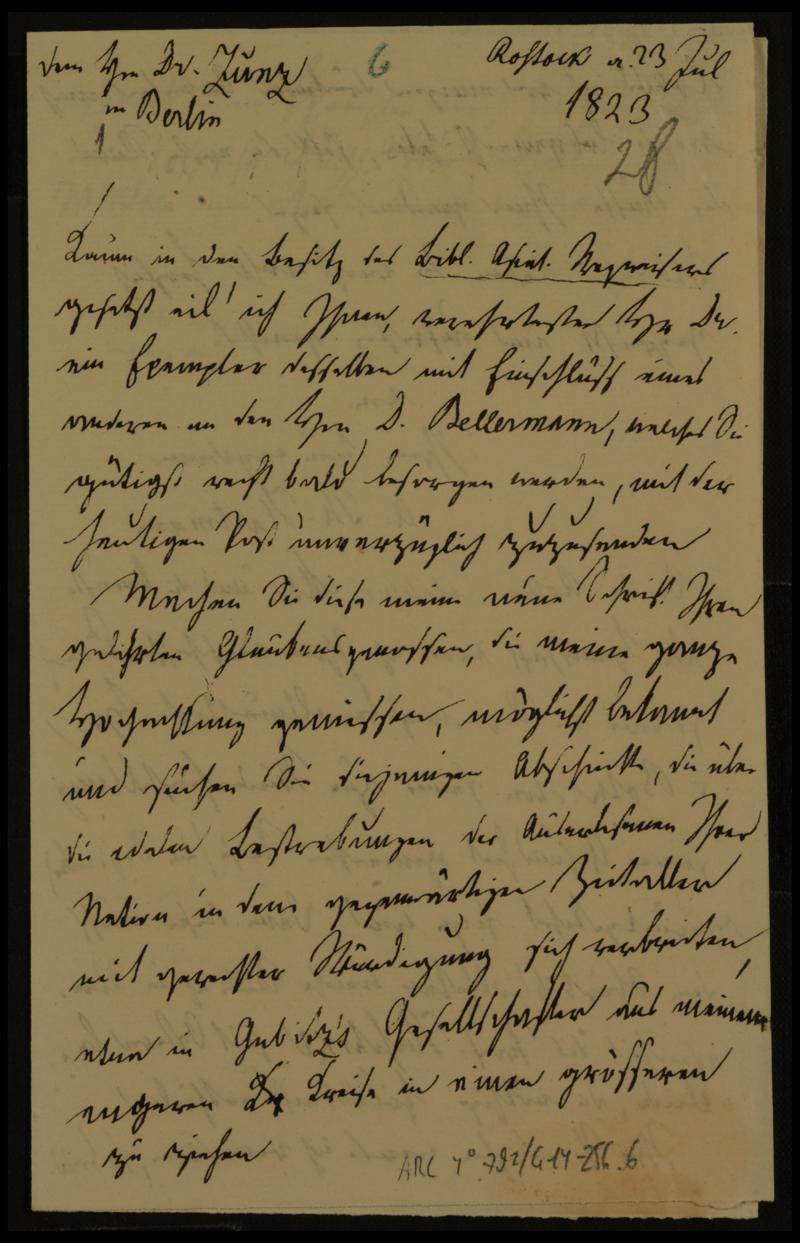 dem Hn Dr. Zunz
in Berlin
6
Rostock d. 23 Jul
1823
28
Kaum in den Besitz des Bibl. Asiat. Wegweisers
gesetzt eil' ich Ihnen, verehrtester Hr Dr.
ein Exemplar desselben mit Einschluss eines
anderen an den Hrn D. Bellermann, welches Sie
gütigst recht bald besorgen werden, mit der
heutigen Post unverzüglich zuzusenden
Machen Sie diese meine neue Schrift Ihren
gelehrten Glaubensgenossen, die meine ganze
Hochachtung geniessen, möglichst bekannt
und suchen Sie diejenigen Abschnitte, die über
die edelen Bestrebungen der Auserlesenen Ihrer
Nation in dem gegenwärtigen Zeitalter
mit gerechter Würdigung sich verbreiten,
etwa in Gubitz's Gesellschafter aus meinem
engeren Kreise in einen grösseren
zu ziehen
ARC 4° 792/G14-256.6